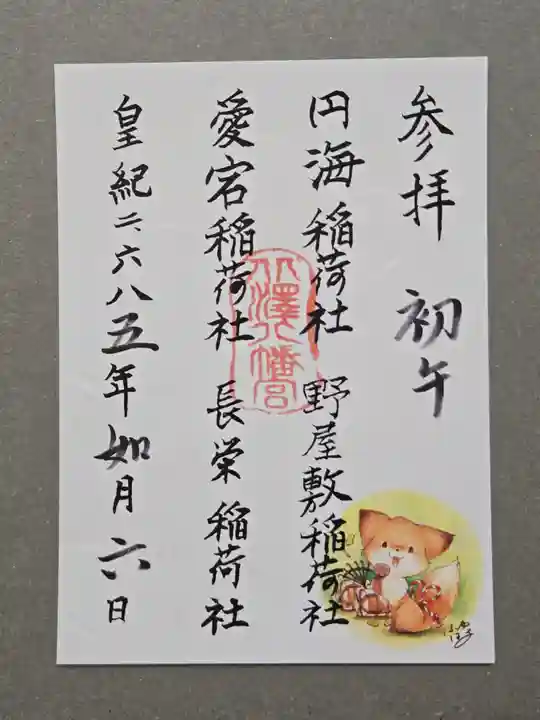 参拝 初午
円海稲荷社 野屋敷稲荷社
愛宕稲荷社 長栄稲荷社
皇紀二、六八五年如月六日
八幡宮